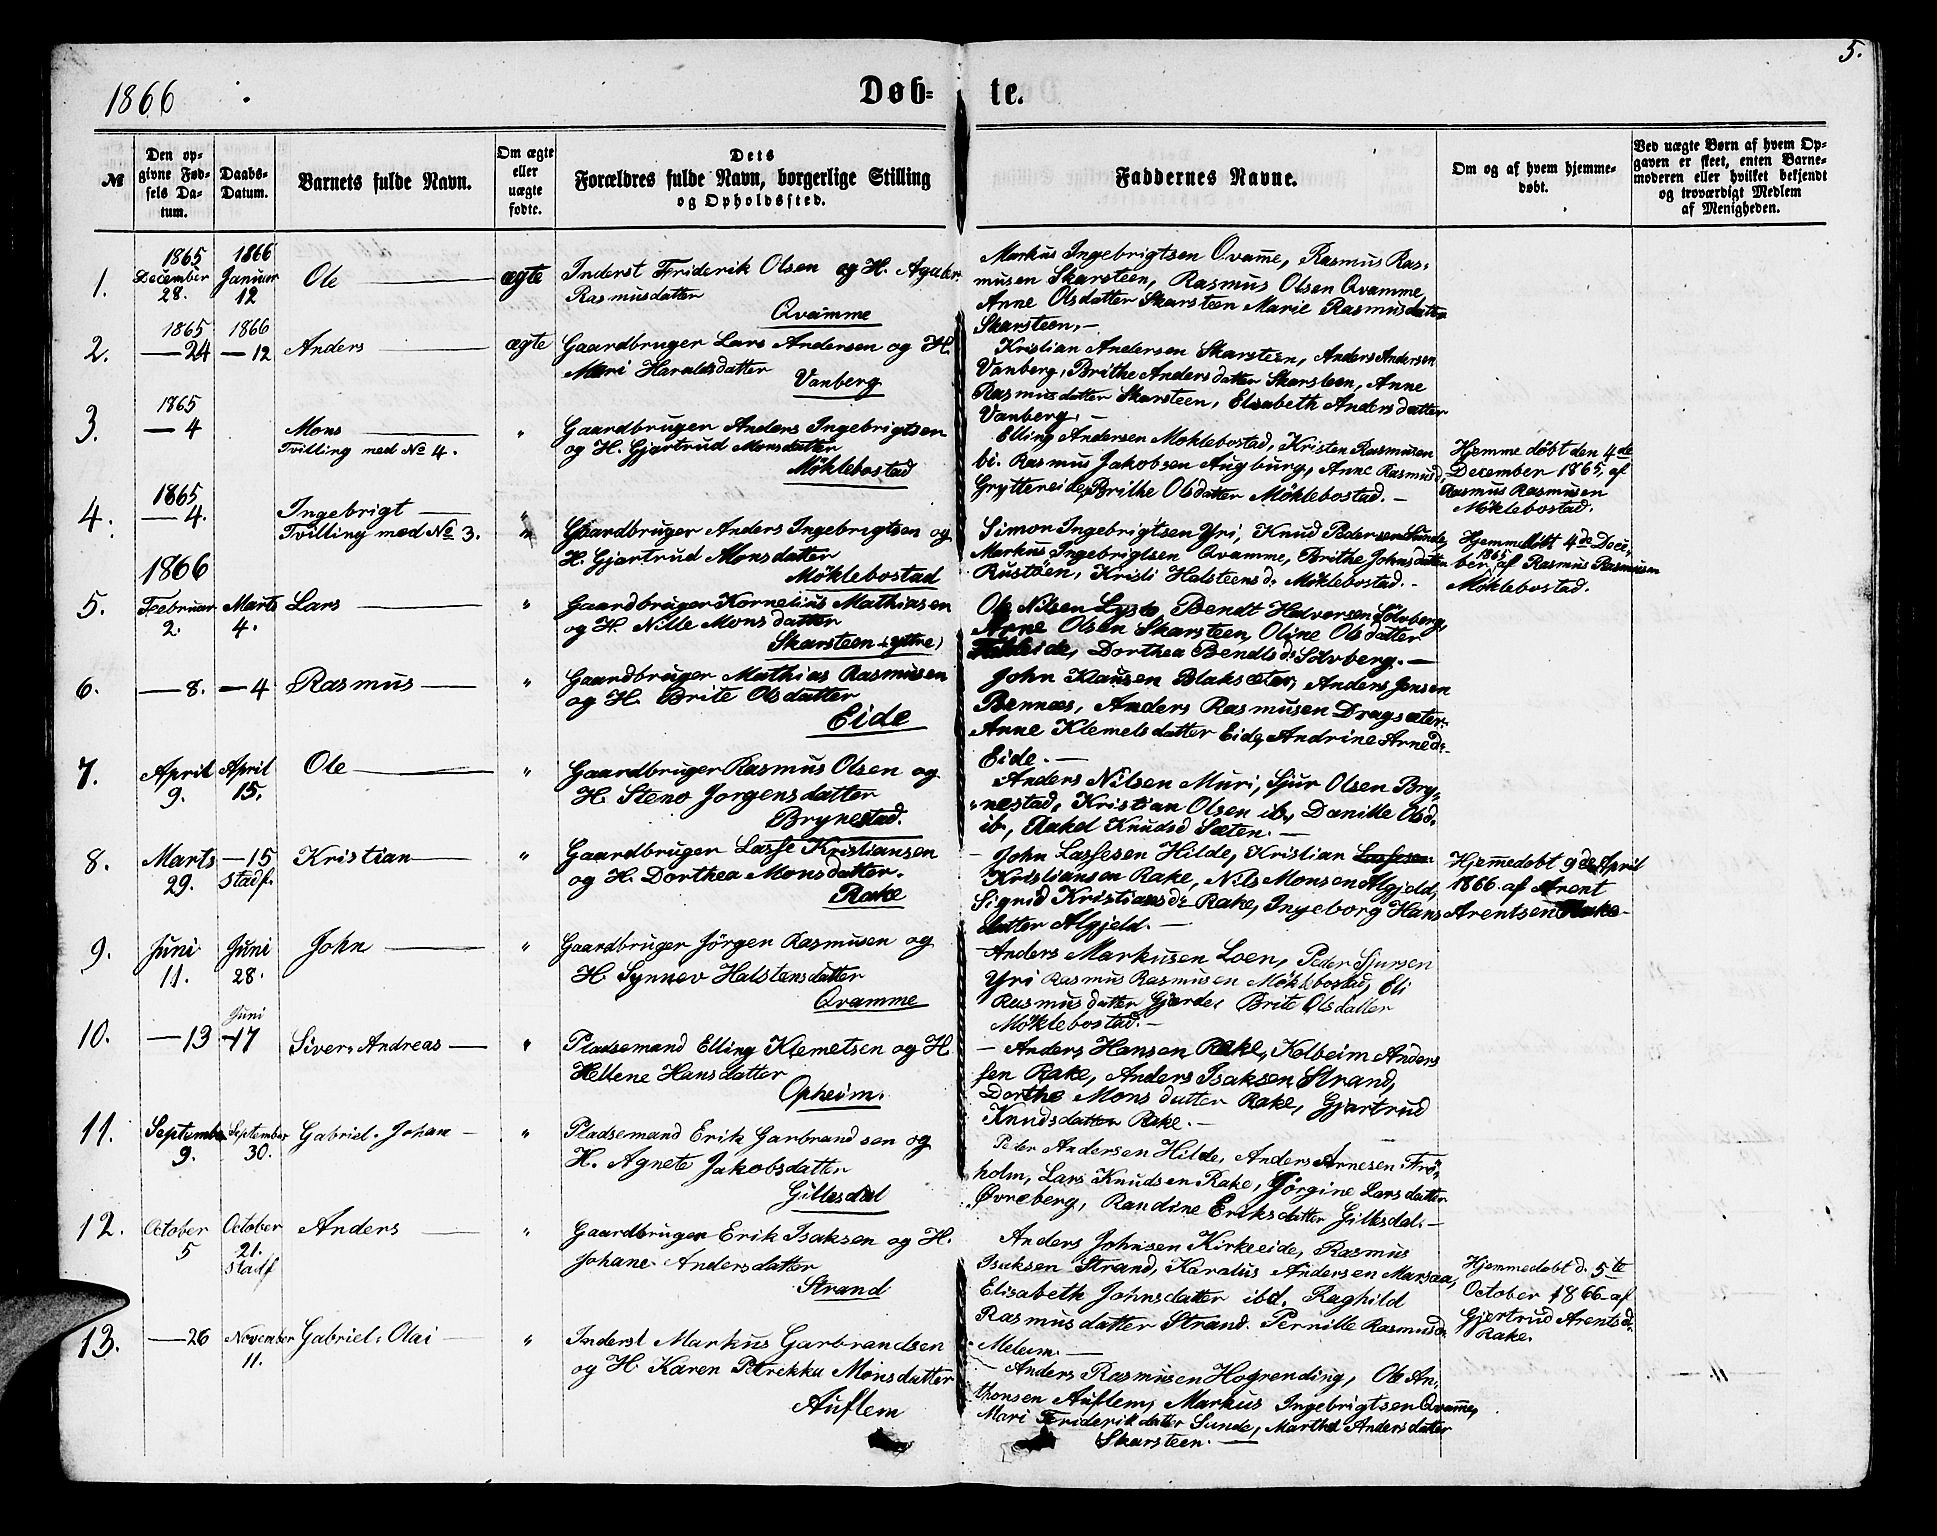 5.
1866
Døb-
te.
№
Den op-
givne Fød-
sels Da-
tum.
Daabs-
Datum.
Barnets fulde Navn.
Om ægte
eller
uægte
fødte.
Dets
Forældres fulde Navn, borgerlige Stilling
og Opholdssted.
Faddernes Navne.
Om og af hvem hjemme-
døbt.
Ved uægte Børn af hvem Op-
gaven er skeet, enten Barne-
moderen eller hvilket bekjendt
og troværdigt Medlem
af Menigheden.
1.
1865
December
28.
1866
Januar
12
Ole
ægte
Inderst Friderik Olsen og H.
Rasmusdatter
Qvamme
Markus Ingebrigtsen Qvamme, Rasmus Ras-
musen Skarsteen, Rasmus Olsen Qvamme,
Anne Olsdatter Skarsteen Marie Rasmusdatter
Skarsteen.-
2.
1865
—24
1866
—12
Anders
ægte
Gaardbruger Lars Andersen og H.
Mari Haraldsdatter
Vanberg
Kristian Andersen Skarsteen, Anders Andersen
Vanberg, Brithe Andersdatter Skarsteen, Anne
Rasmusdatter Skarsteen, Elisabeth Andersdatter
Vanberg. -
3.
1865
— 4
Mons
Tvilling med No 4.
"
Gaardbruger Anders Ingebrigtsen
og H. Gjertrud Monsdatter
Möklebostad
Elling Andersen Moklebostad, Kristen Rasmusen
bi. Rasmus Jakobsen Augburg, Anne Rasmusd
Gryttereide, Brithe Olsdatter Möklebostad. -
Hjemme døbt den 4de
December 1865, af
Rasmus Rasmusen
Möklebostad.
4.
1865
— 4.
Ingebrigt
Tvilling med No 3.
"
Gaardbruger Anders Ingebrigtsen og
H. Gjertrud Monsdatter
Möklebostad
Simon Ingebrigtsen Yri, Knud Pedersen Sunde,
Markus Ingebrigtsen Qvamme, Brithe Johnsdatter
Rustöen, Kristi Halsteensd: Möklebostad. -
Hjemmedöbt 4de Decem
ber 1865 af Rasmus Rasmusen
Möklebostad.
1866
5.
Februar
2.
Marts
4.
Lars
"
Gaardbruger Kornelius Mathiasen
og H. Nille Monsdatter
Skarsteen (yttre)
Ole Nilsen Bendt Halvorsen Solvberg,
Arne Olsen Skarsteen, Oline Olsdatter
Dorthea Bendtsd: Sölvberg. —
6.
— 8.
— 4
Rasmus
"
Gaardbruger Mathias Rasmusen
og H. Brite Olsdatter
Eide
John Klausen Blaksæter, Anders Jonsen
Bennæs, Anders Rasmusen Dragsæter.
Anne Klemetsdatter Eide, Andrine Arned:
Eide. —
7.
April
9.
April
15.
Ole
"
Gaardbruger Rasmus Olsen og
H. Steno Jorgensdatter
Brynestad.
Anders Nilsen Muri, Sjur Olsen Bry-
nestad, Kristian Olsen ib, Danille Olsd:
ib, Rakel Knudsd Sæten. —
8.
Marts
29.
—15
stadf.
Kristian
"
Gaardbruger Lasse Kristiansen
og H. Dorthea Monsdatter.
Rake
- John Lassesen Hilde, Kristian Lassesen
Kristiansen Rake, Nils Monsen Algjeld,
Sigrid Kristiansd: Rake, Ingeborg Hans
datter Algjeld. —
Hjemmedöbt 9de April
1866 af Arent
Arentsen Rake
9.
Juni
11.
Juni
28.
John
"
Gaardbruger Jörgen Rasmusen og
H Synnev Halstensdatter
Qvamme
- Anders Markusen Loen, Peder Sjursen
Yri Rasmus Rasmusen Möklebostad, Eli
Rasmusdatter Gjerde, Brite Olsdatter
Möklebostad. -
10.
—13
Juni
17
Siver, Andreas
"
Pladsemand Elling Klemetsen og H
Hellene Hansdatter
Opheim.
- Anders Hansen Rake, Kolbeim Anders
sen Rake, Anders Isaksen Strand,
Dorthe Monsdatter Rake, Gjertrud
Knudsdatter Rake. -
11.
September
9.
September
30.
Gabriel. Johan
"
Pladsemand Erik Garbrandsen og
H. Agnete Jakobsdatter
Gillesdal
Peder Andersen Hilde, Anders Arnesen Frö-
holm, Lars Knudsen Rake, Jörgine Larsdatter
Øvreberg, Randine Eriksdatter Gillesdal. —
12.
October
5
October
21.
stadf
Anders
"
Gaardbruger Erik Isaksen og H.
Johane Andersdatter
Strand
Anders Johnsen Kirkeeide, Rasmus
Isaksen Strand, Karolus Andersen Marsaa,
Elisabeth Johnsdatter ibd. Raghild
Rasmusdatter Strand. Pernille Rasmusd:
Meleim. —
Hjemmedøbt d. 5te
October 1866 af
Gjertrud Arentsd:
Rake.
13.
—26
November
11.
Gabriel. Olai
"
Inderst Markus Garbrandsen
og H. Karen Petrekka Monsdatter
Auflem
- Anders Rasmusen Hogrending, Ole An-
thonsen Auflem, Markus Ingebrigtsen Qvamme,
Mari Frideriksdatter Sunde, Marthe Andersdatter
Skarsteen. —